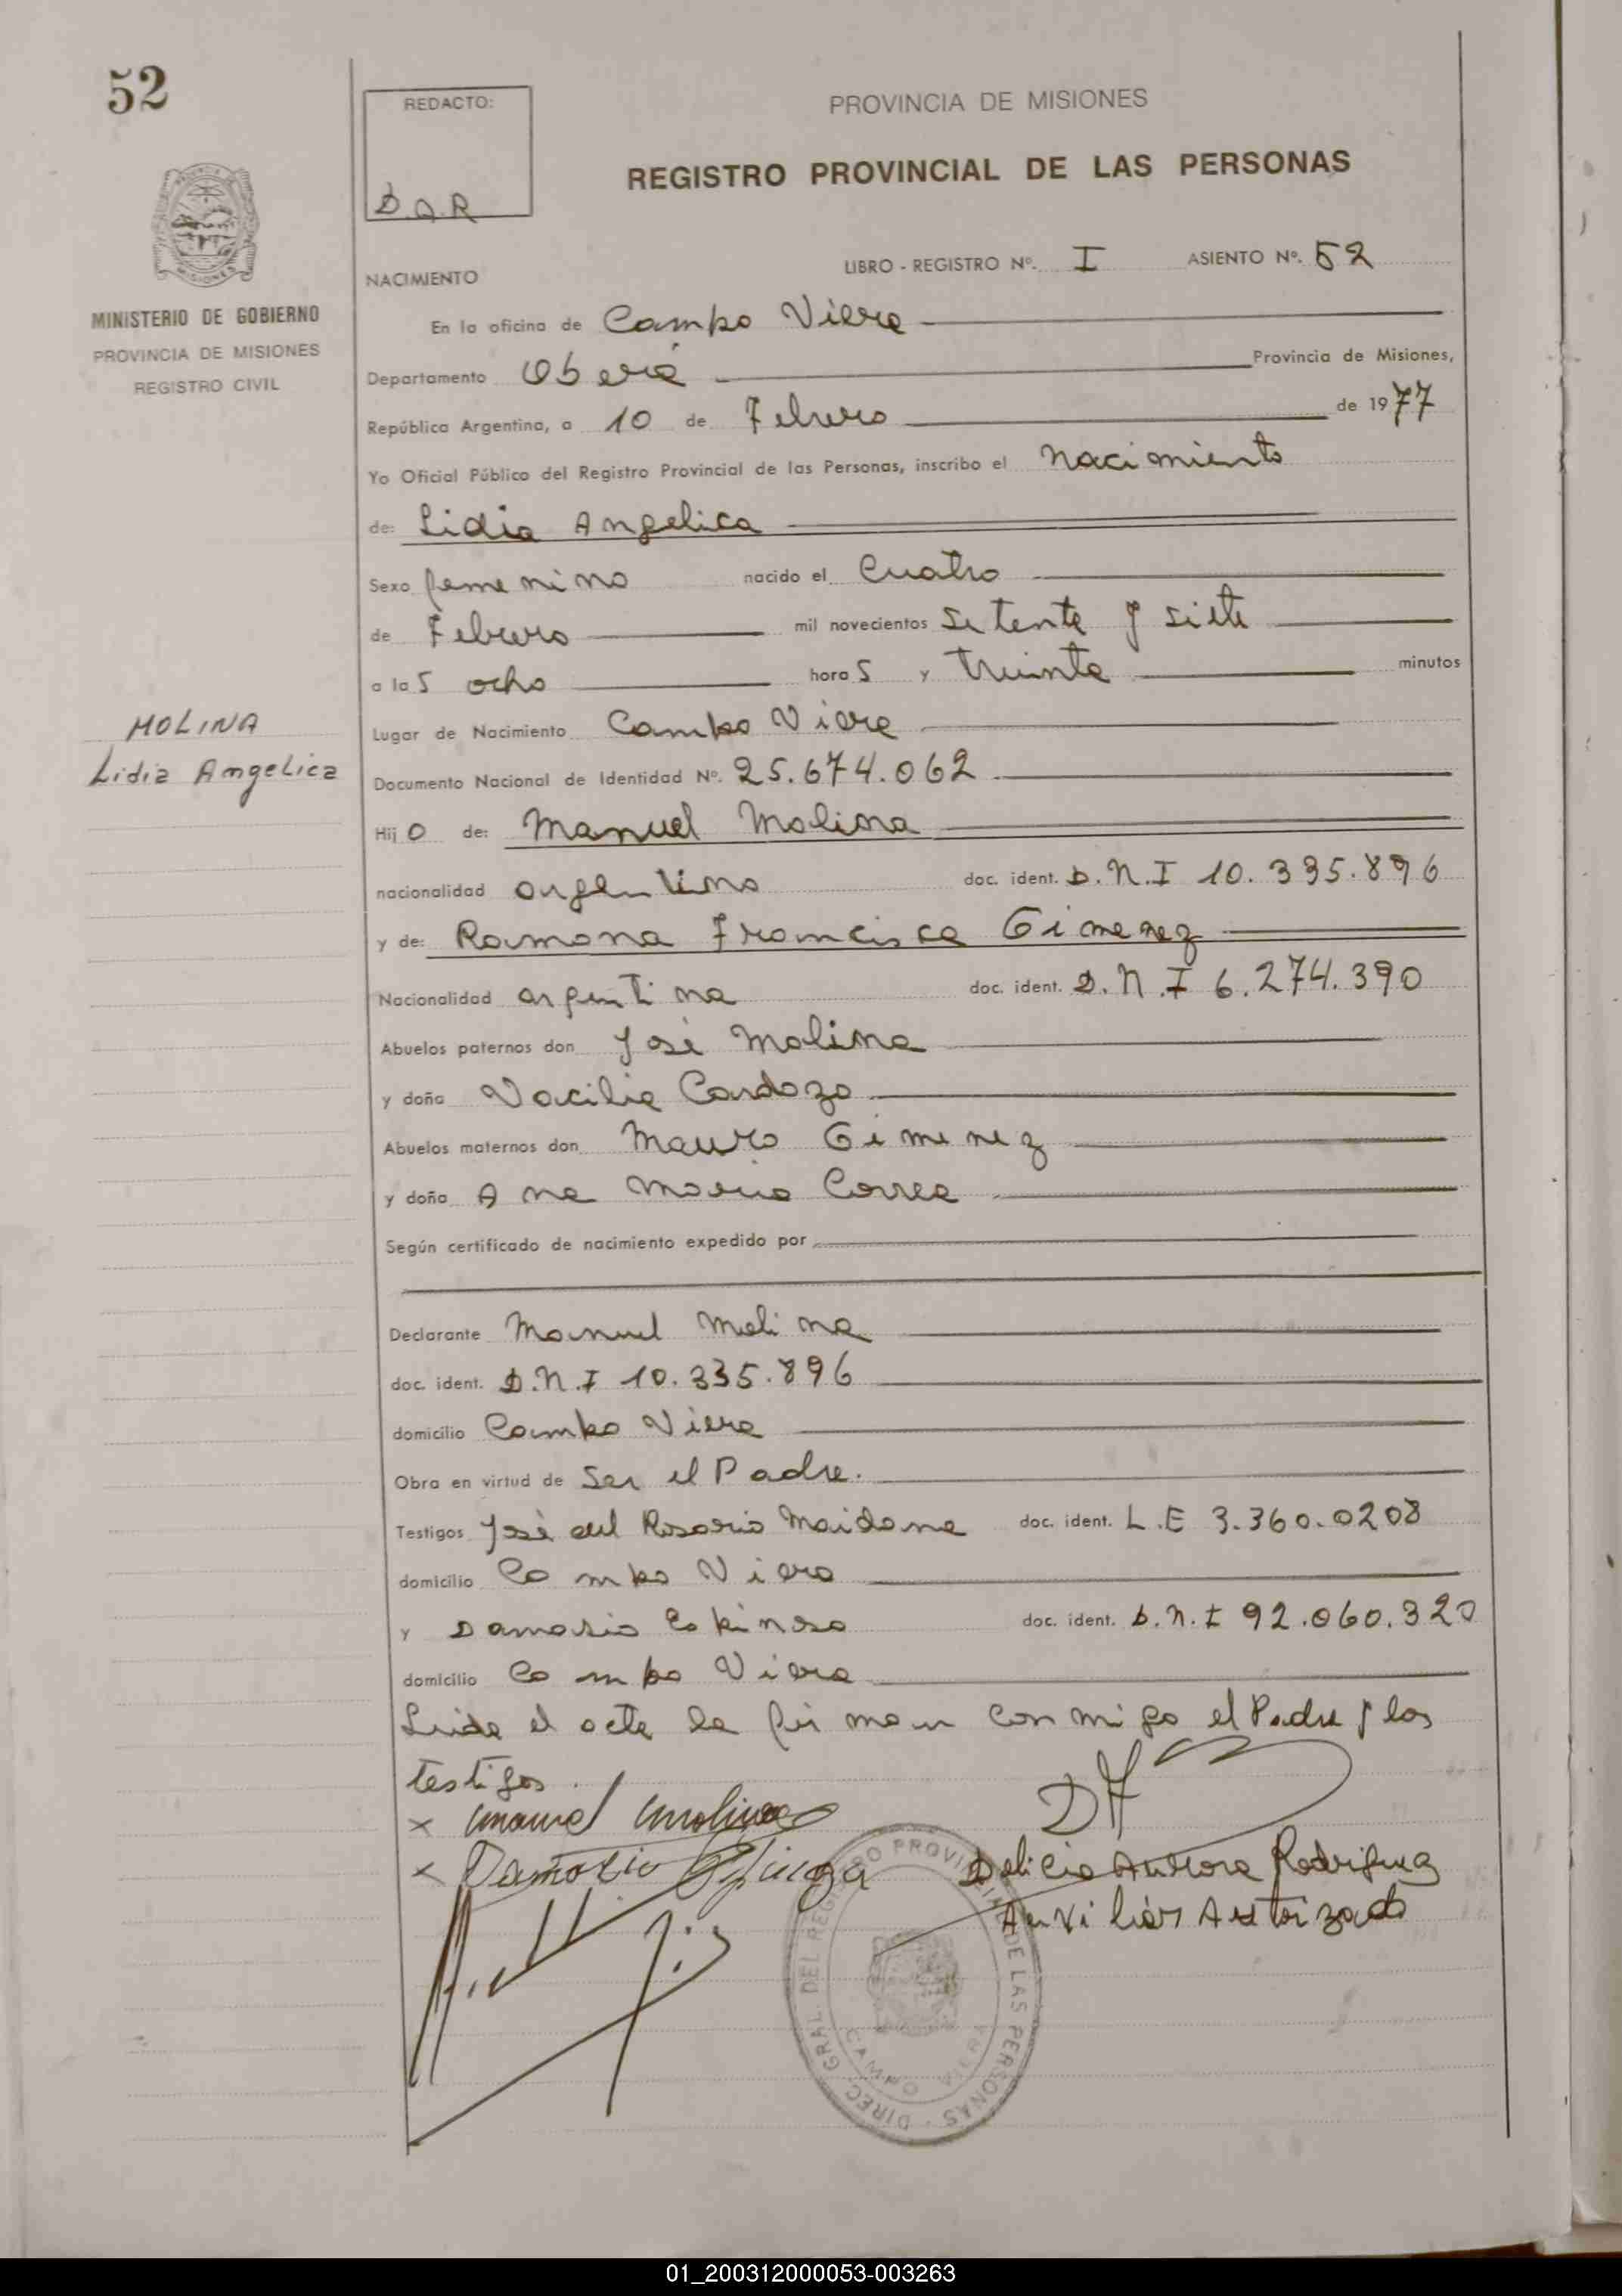 52
REDACTO:
D.A.R
PROVINCIA DE MISIONES
REGISTRO PROVINCIAL DE LAS PERSONAS
MINISTERIO DE GOBIERNO
PROVINCIA DE MISIONES
REGISTRO CIVIL
NACIMIENTO
LIBRO - REGISTRO Nº. I ASIENTO Nº. 52
En la oficina de Campo Viera
Departamento Oberá Provincia de Misiones,
República Argentina, a 10 de Febrero de 1977
Yo Oficial Público del Registro Provincial de las Personas, inscribo el nacimiento
de: Lidia Angelica
Sexo femenino nacido el Cuatro
de Febrero mil novecientos setenta y siete
a las ocho horas y treinta minutos
Lugar de Nacimiento Campo Viera
MOLINA
Lidia Angelica
Documento Nacional de Identidad Nº. 25.674.062
Hijo de: Manuel Molina
nacionalidad argentino doc. ident. D.N.I 10.335.896
y de: Ramona Francisca Gimenez
Nacionalidad argentina doc. ident. D.N.I 6.274.390
Abuelos paternos don José Molina
y doña Vacilia Cardozo
Abuelos maternos don Mauro Gimenez
y doña Ana Maria Correa
Según certificado de nacimiento expedido por
Declarante Manuel Molina
doc. ident. D.N.I 10.335.896
domicilio Campo Viera
Obra en virtud de Ser el Padre.
Testigos José del Rosario Maidana doc. ident. L.E 3.360.0208
domicilio Campo Viera
y Damasio doc. ident. D.N.I 92.060.320
domicilio Campo Viera
Leida el acta la firman conmigo el Padre y los
testigos.
x Manuel Molina
x Damasio
Delicia Aurora Rodriguez
Auxiliar Autorizado
DIREC. GRAL. DEL REGISTRO PROVINCIAL DE LAS PERSONAS -
CAMPO VIERA
01_200312000053-003263